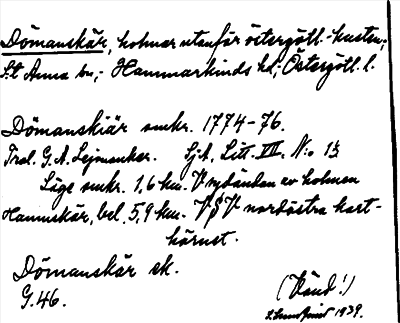 Dömanskär, holmar utanför östergötl.-kusten;
S:t Anna sn; Hammarkinds hd; Östergötl. l.
Dömanskiär smkr. 1774-76.
Trol. G. A. Lejonanker. Sjk. Litt. VII. N:o 13
Läge smkr. 1,6 km. V sydändan av holmen
Hamnskär, bel. 5,9 km. VSV nordöstra kart-
hörnet.
Dömanskär ek.
G.46.
(Vänd!)
1939.